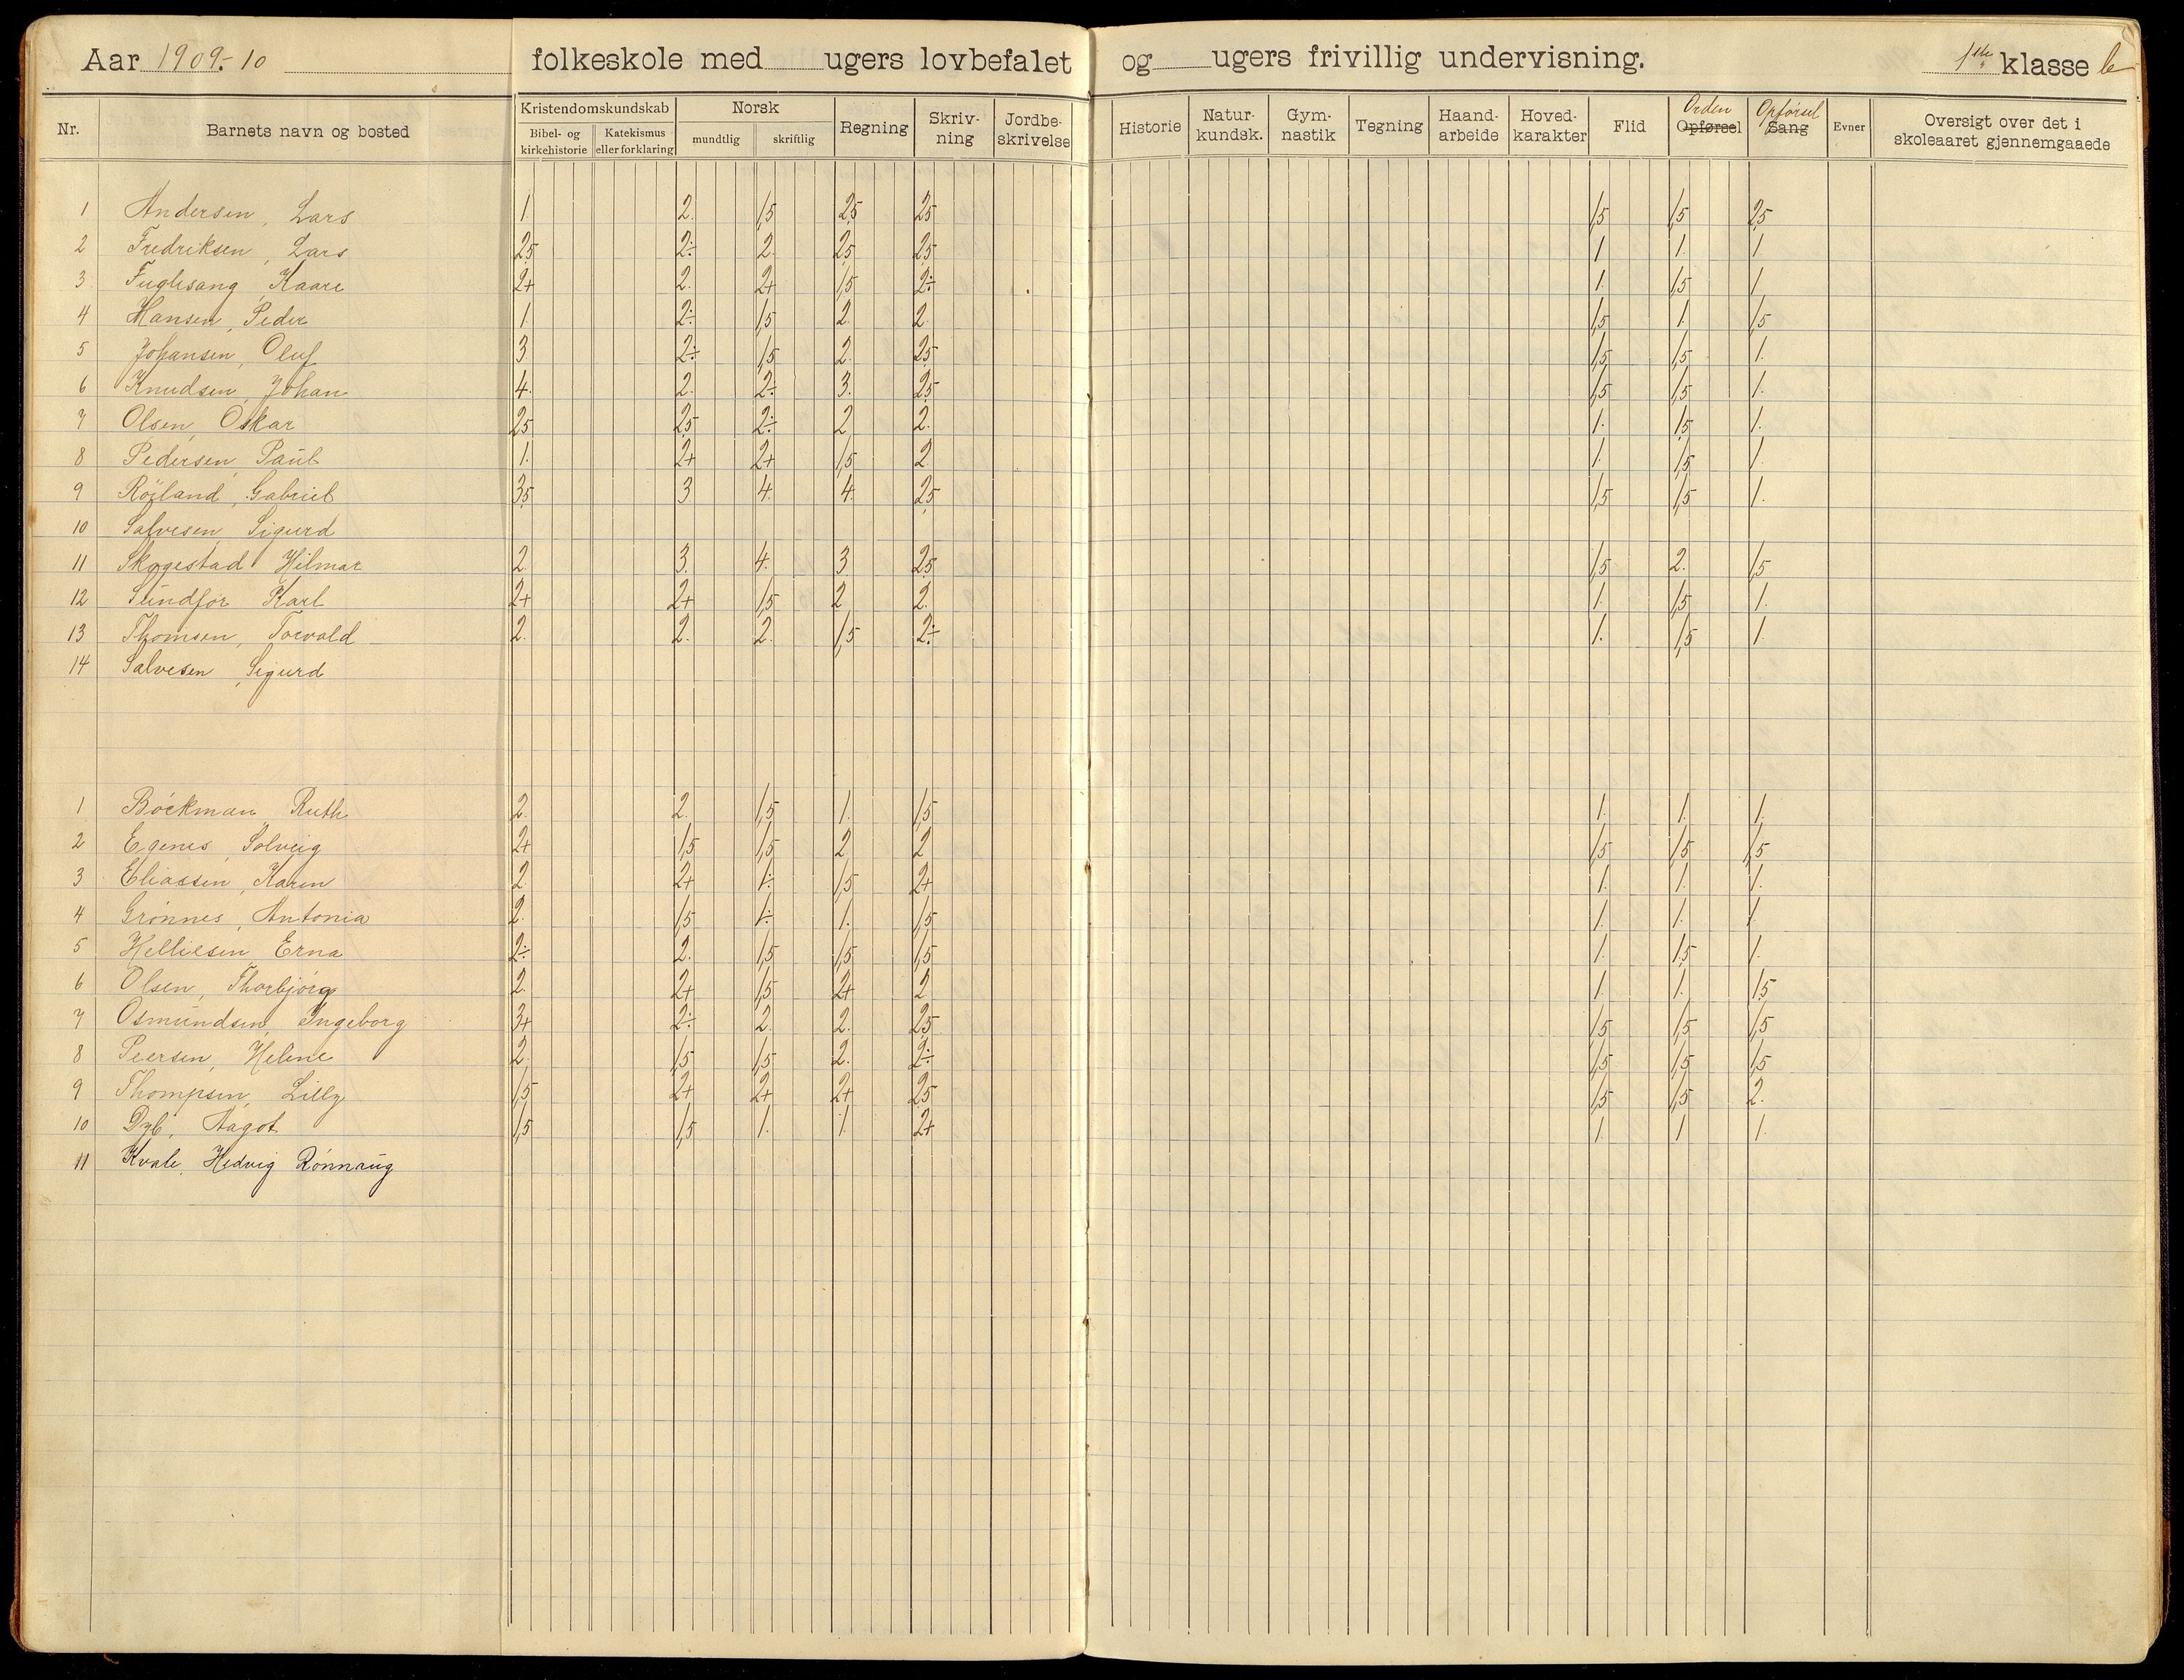 Aar 1909.-10 folkeskole med ugers lovbefalet og ugers frivillig undervisning. 1ste klasse b
Nr. Barnets navn og bosted Kristendomskundskab Bibel- og kirkehistorie Katekismus eller forklaring Norsk mundtlig skriftlig Regning Skriv-ning Jordbe-skrivelse Historie Natur-kundsk. Gym-nastik Tegning Haand-arbeide Hoved-karakter Flid Orden Opførsel Opførsel Sang Evner Oversigt over det i skoleaaret gjennemgaaede
1 Andersen, Lars 1. 2. 1,5 2,5 2,5 1,5 1,5 2,5
2 Fredriksen, Lars 2,5 2÷ 2. 2,5 2,5 1 1. 1
3 Fuglesang, Kaare 2+ 2. 2+ 1,5 2÷ 1. 1,5 1
4 Hansen, Peder 1. 2÷ 1,5 2. 2. 1,5 1. 1,5
5 Johansen, Oluf 3 2÷ 1,5 2. 2,5 1,5 1,5 1.
6 Knudsen, Johan 4. 2. 2÷ 3. 2,5 1,5 1,5 1.
7 Olsen, Oskar 2,5 2,5 2÷ 2 2. 1. 1,5 1.
8 Pedersen, Paul 1. 2+ 2+ 1,5 2 1. 1,5 1
9 Röiland, Gabriel 3,5 3 4. 4. 2,5 1,5 1,5 1.
10 Salvesen, Sigurd
11 Skogestad Hilmar 2. 3. 4. 3 2,5 1,5 2. 1,5
12 Sundför Karl 2+ 2+ 1,5 2 2. 1. 1,5 1.
13 Thomsen, Torvald 2. 2. 2. 1,5 2÷ 1. 1,5 1.
14 Salvesen, Sigurd
1 Böckman, Ruth 2. 2. 1,5 1. 1,5 1. 1. 1.
2 Egenes, Solveig 2+ 1,5 1,5 2 2 1,5 1,5 1,5
3 Eliassen, Karen 2. 2+ 1÷ 1,5 2+ 1. 1. 1.
4 Grönnes, Antonia 2. 1,5 1÷ 1. 1,5 1. 1. 1.
5 Helliesen, Erna 2÷ 2. 1,5 1,5 1,5 1. 1,5 1.
6 Olsen, Thorbjörg 2. 2+ 1,5 2+ 2. 1. 1. 1,5
7 Osmundsen, Ingeborg 3+ 2÷ 2. 2. 2,5 1,5 1,5 1,5
8 Peersen, Helene 2. 1,5 1,5 2. 2÷ 1,5 1,5 1,5
9 Thompsen, Lilly 1,5 2+ 2+ 2+ 2,5 1,5 1,5 2.
10 Dyb, Aagot 1,5 1,5 1. 1 2+ 1. 1 1.
11 Kvale, Hedvig Rönnaug